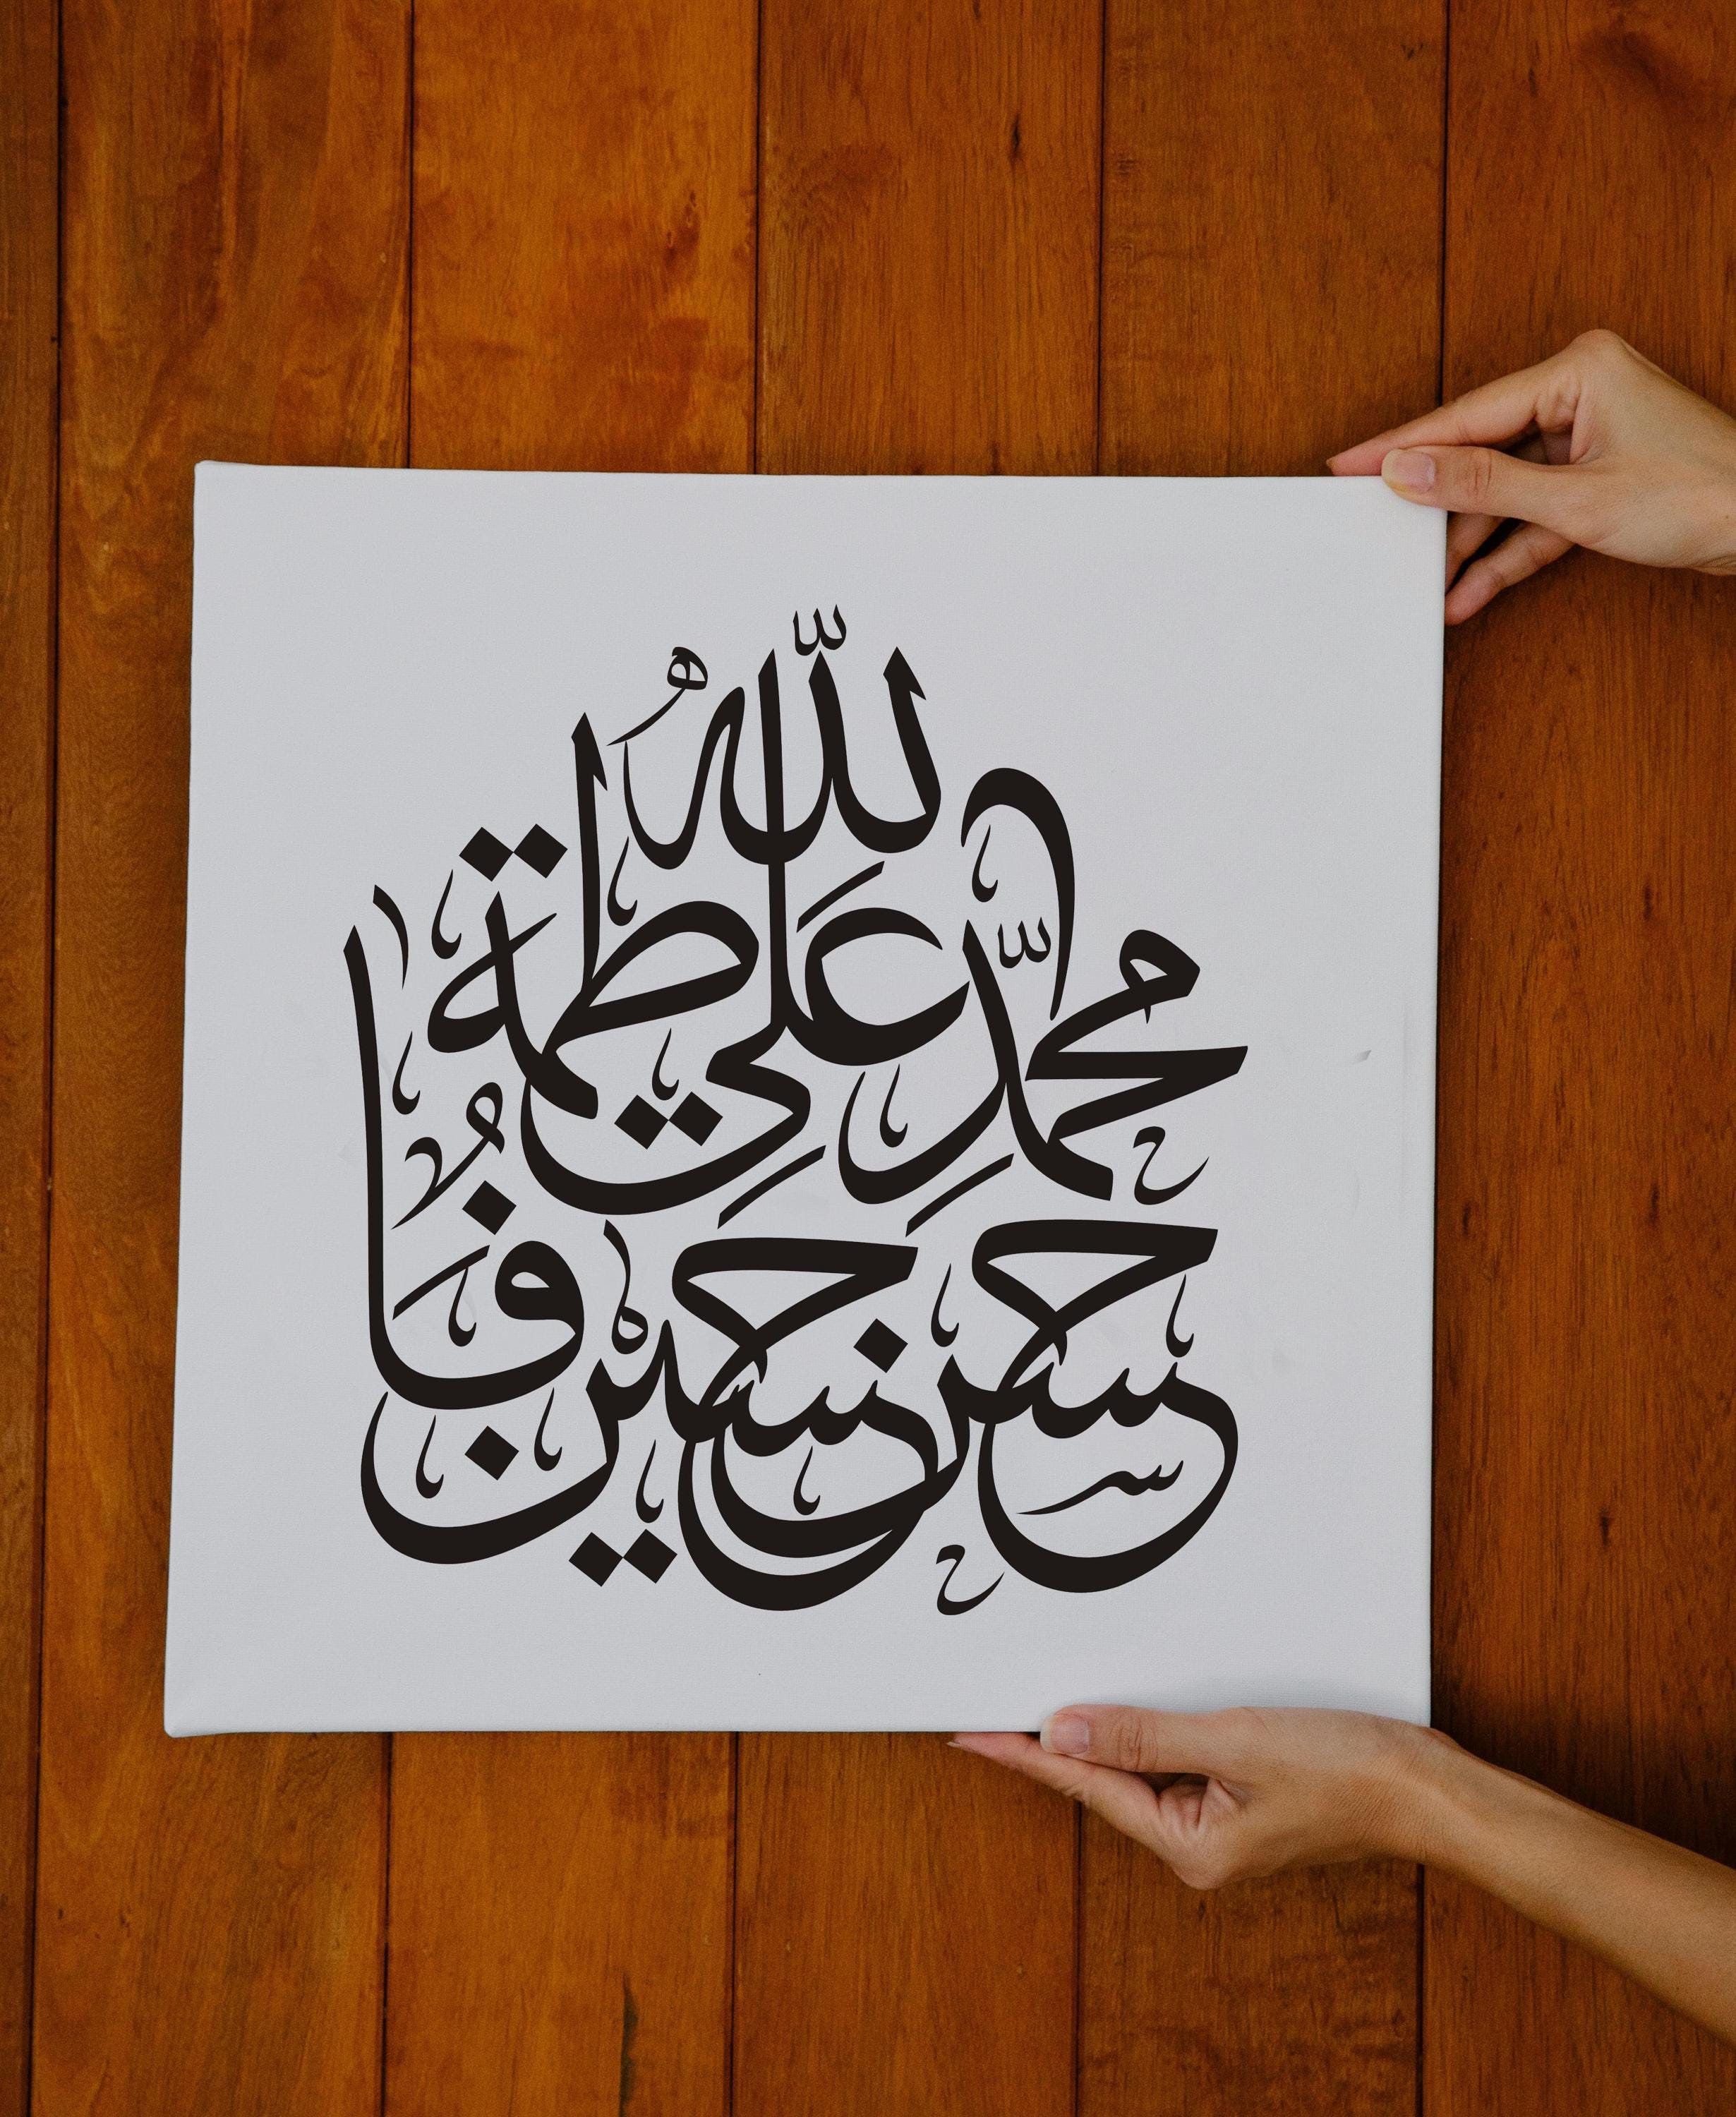 الله
محمد علي فاطمة
حسن حسين